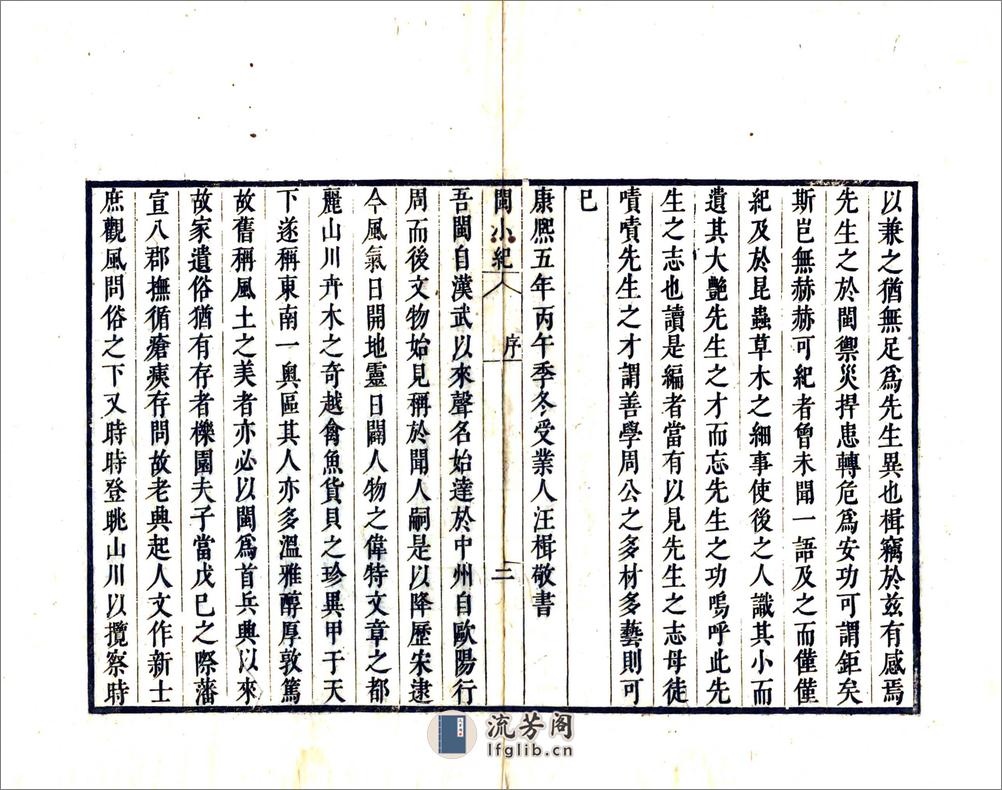 以兼之猶無足爲先生異也楫竊於兹有感焉
先生之於閩禦災捍患轉危爲安功可謂鉅矣
斯岂無赫赫可紀者曾未聞一語及之而僅僅
紀及於昆蟲草木之細事使後之人識其小而
遺其大艶先生之才而忘先生之功嗚呼此先
生之志也讀是編者當有以見先生之志毋徒
嘖嘖先生之才謂善學周公之多材多藝則可
巳
康熙五年丙午季冬受業人汪楫敬書
閩小紀 序 二
吾閩自漢武以來聲名始達於中州自歐陽行
周而後文物始見稱於聞人嗣是以降歷宋逮
今風氣日開地靈日闢人物之偉特文章之都
麗山川卉木之奇越禽魚貨貝之珍異甲于天
下遂稱東南一奥區其人亦多溫雅醇厚敦篤
故舊稱風土之美者亦必以閩爲首兵興以來
故家遺俗猶有存者櫟園夫子當戊巳之際藩
宣八郡撫循瘡痍存問故老興起人文作新士
庶觀風問俗之下又時時登眺山川以攬察時
流芳阁
lfglib.cn